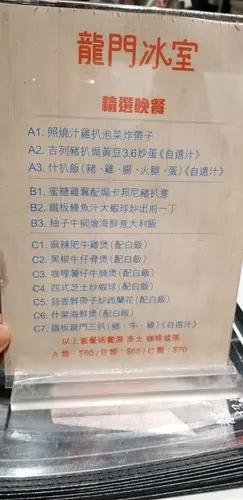 龍門冰室
精選晚餐
A1. 照燒汁雞扒泡菜炸帶子
A2. 吉列豬扒焗黃豆3.6炒蛋《自選汁》
A3. 什扒飯（豬、雞、腸、火腿、蛋）《自選汁》
B1. 蜜糖雞翼配焗卡邦尼豬扒意
B2. 鐵板鰻魚汁大蝦球炒出前一丁
B3. 柚子牛柳燴海鮮意大利飯
C1. 麻辣肥牛雞煲（配白飯）
C2. 黑椒牛仔骨煲（配白飯）
C3. 咖喱薯仔牛腩煲（配白飯）
C4. 四式芝士炒蝦球（配白飯）
C5. 蒜香鮮帶子炒西蘭花（配白飯）
C6. 什菜海鮮煲（配白飯）
C7. 鐵板龍門三扒（豬、牛、雞）《自選汁》
以上套餐送餐湯 多士 咖啡或茶
A 類：$60 / B 類：$65 / C 類：$70